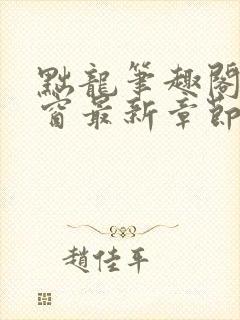 點龍筆趣閣
窗最新章節
趙佳平